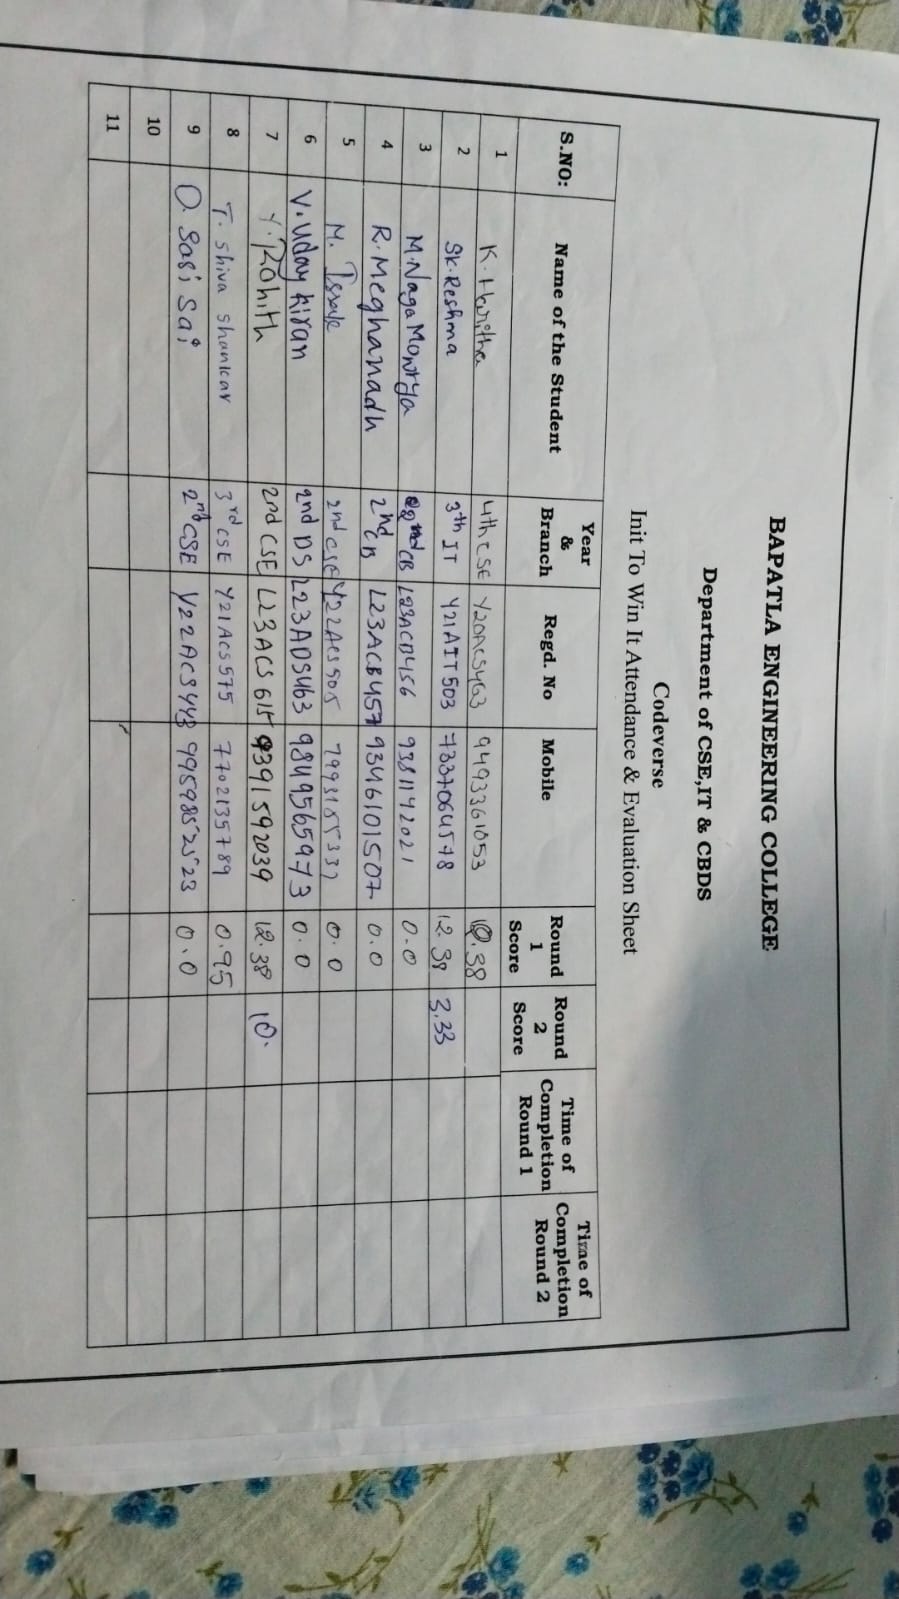 BAPATLA ENGINEERING COLLEGE
Department of CSE,IT & CBDS
Codeverse
Init To Win It Attendance & Evaluation Sheet
S.NO: Name of the Student Year & Branch Regd. No Mobile Round 1 Score Round 2 Score Time of Completion Round 1 Time of Completion Round 2
1 K. Haritha 4th CSE Y20ACS463 9493361053 10.38
2 SK. Reshma 3th IT Y21AIT503 7337064578 12.38 3.33
3 M. Naga Mowrya 2nd CB L23ACB456 9381142021 0.0
4 R. Meghanadh 2nd CB L23ACB457 9346101507 0.0
5 M. 2nd CSE Y22ACS505 0.0
6 V. Uday Kiran 2nd DS L23ADS463 9849565973 0.0
7 Y. Rohith 2nd CSE L23ACS615 9391592039 12.38 10.
8 T. Shiva Shankar 3rd CSE Y21ACS575 7702135789 0.95
9 O. Sasi Sai 2nd CSE Y22ACS443 9959852523 0.0
10
11